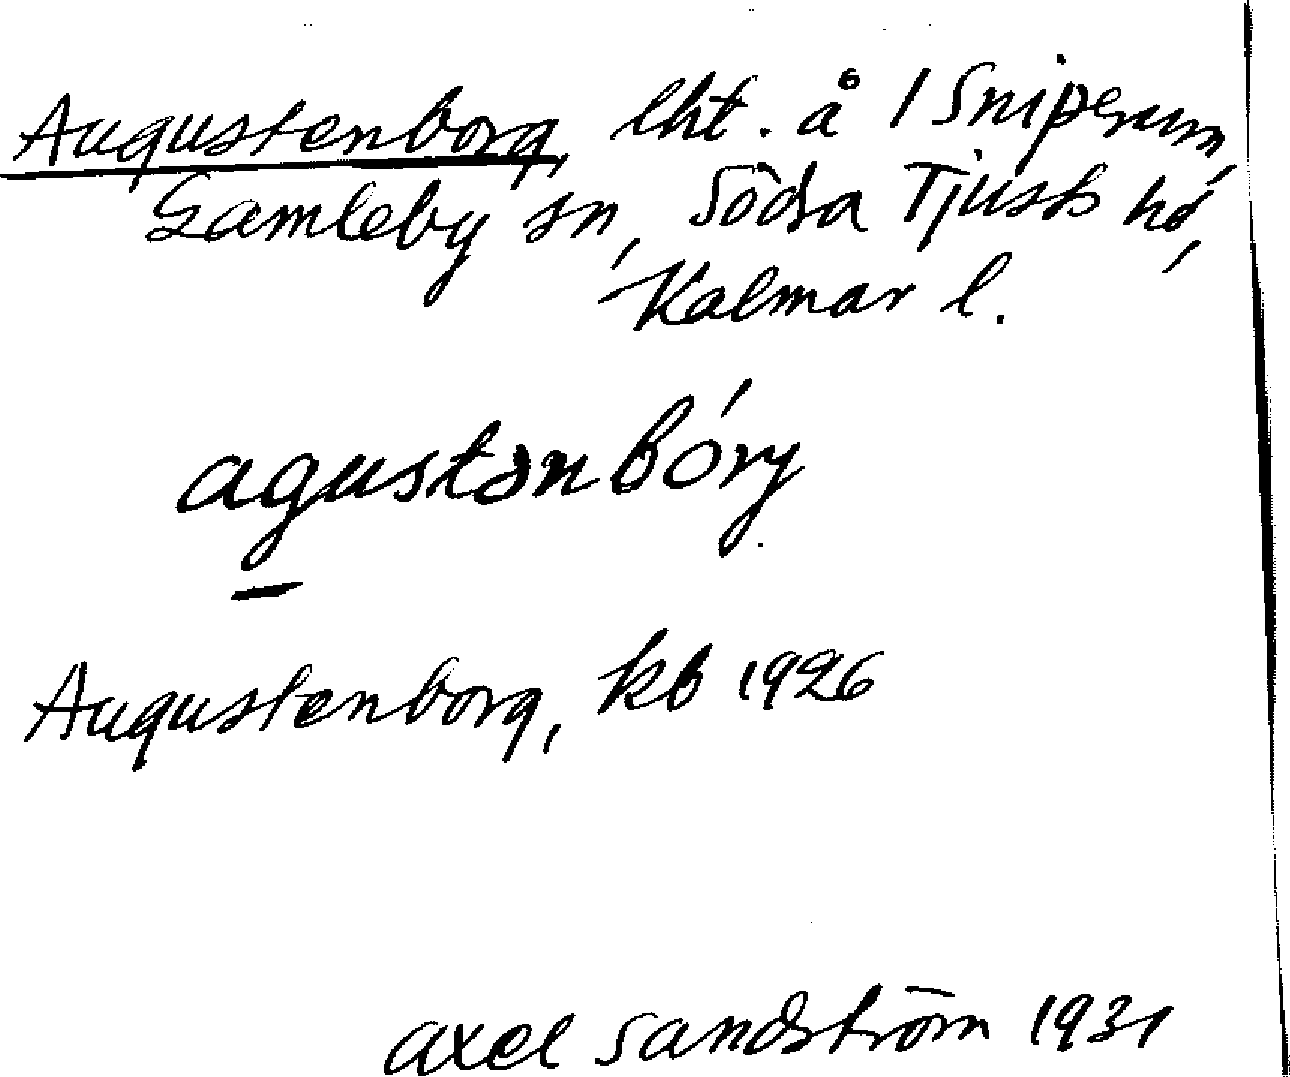 Augustenborg, lht. å 1 Sniperum,
Gamleby sn, Södra Tjusts hd,
Kalmar l.
agustənbórj
Augustenborg, kb 1926
Axel Sandström 1931